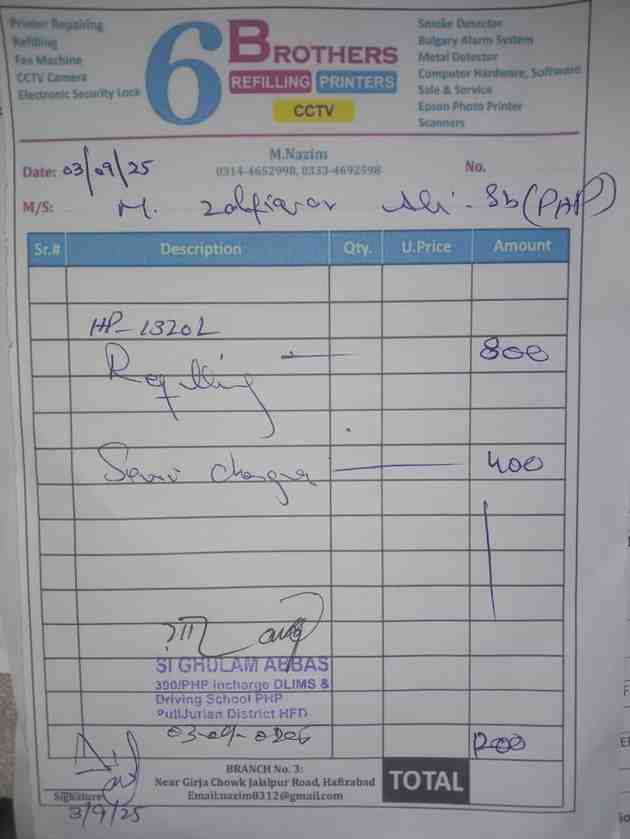 Printer Repairing
Refilling
Fax Machine
CCTV Camera
Electronic Security Lock
6 BROTHERS
REFILLING PRINTERS
CCTV
Smoke Detector
Bulgary Alarm System
Metal Detector
Computer Hardware, Software
Sale & Service
Epson Photo Printer
Scanners
M.Nazim
0314-4652998, 0333-4692598
Date: 03/09/25
No.
M/S: M. Zolfiqar Ali - Sb (PHP)
Sr.# Description Qty. U.Price Amount
HP-1320L
Refilling 800
400
SI GHULAM ABBAS
390/PHP Incharge DLIMS &
Driving School PHP
PullJurian District HFD
1200
BRANCH No. 3:
Near Girja Chowk Jalalpur Road, Hafizabad
Email:nazim8312@gmail.com
TOTAL
Signature
3/9/25